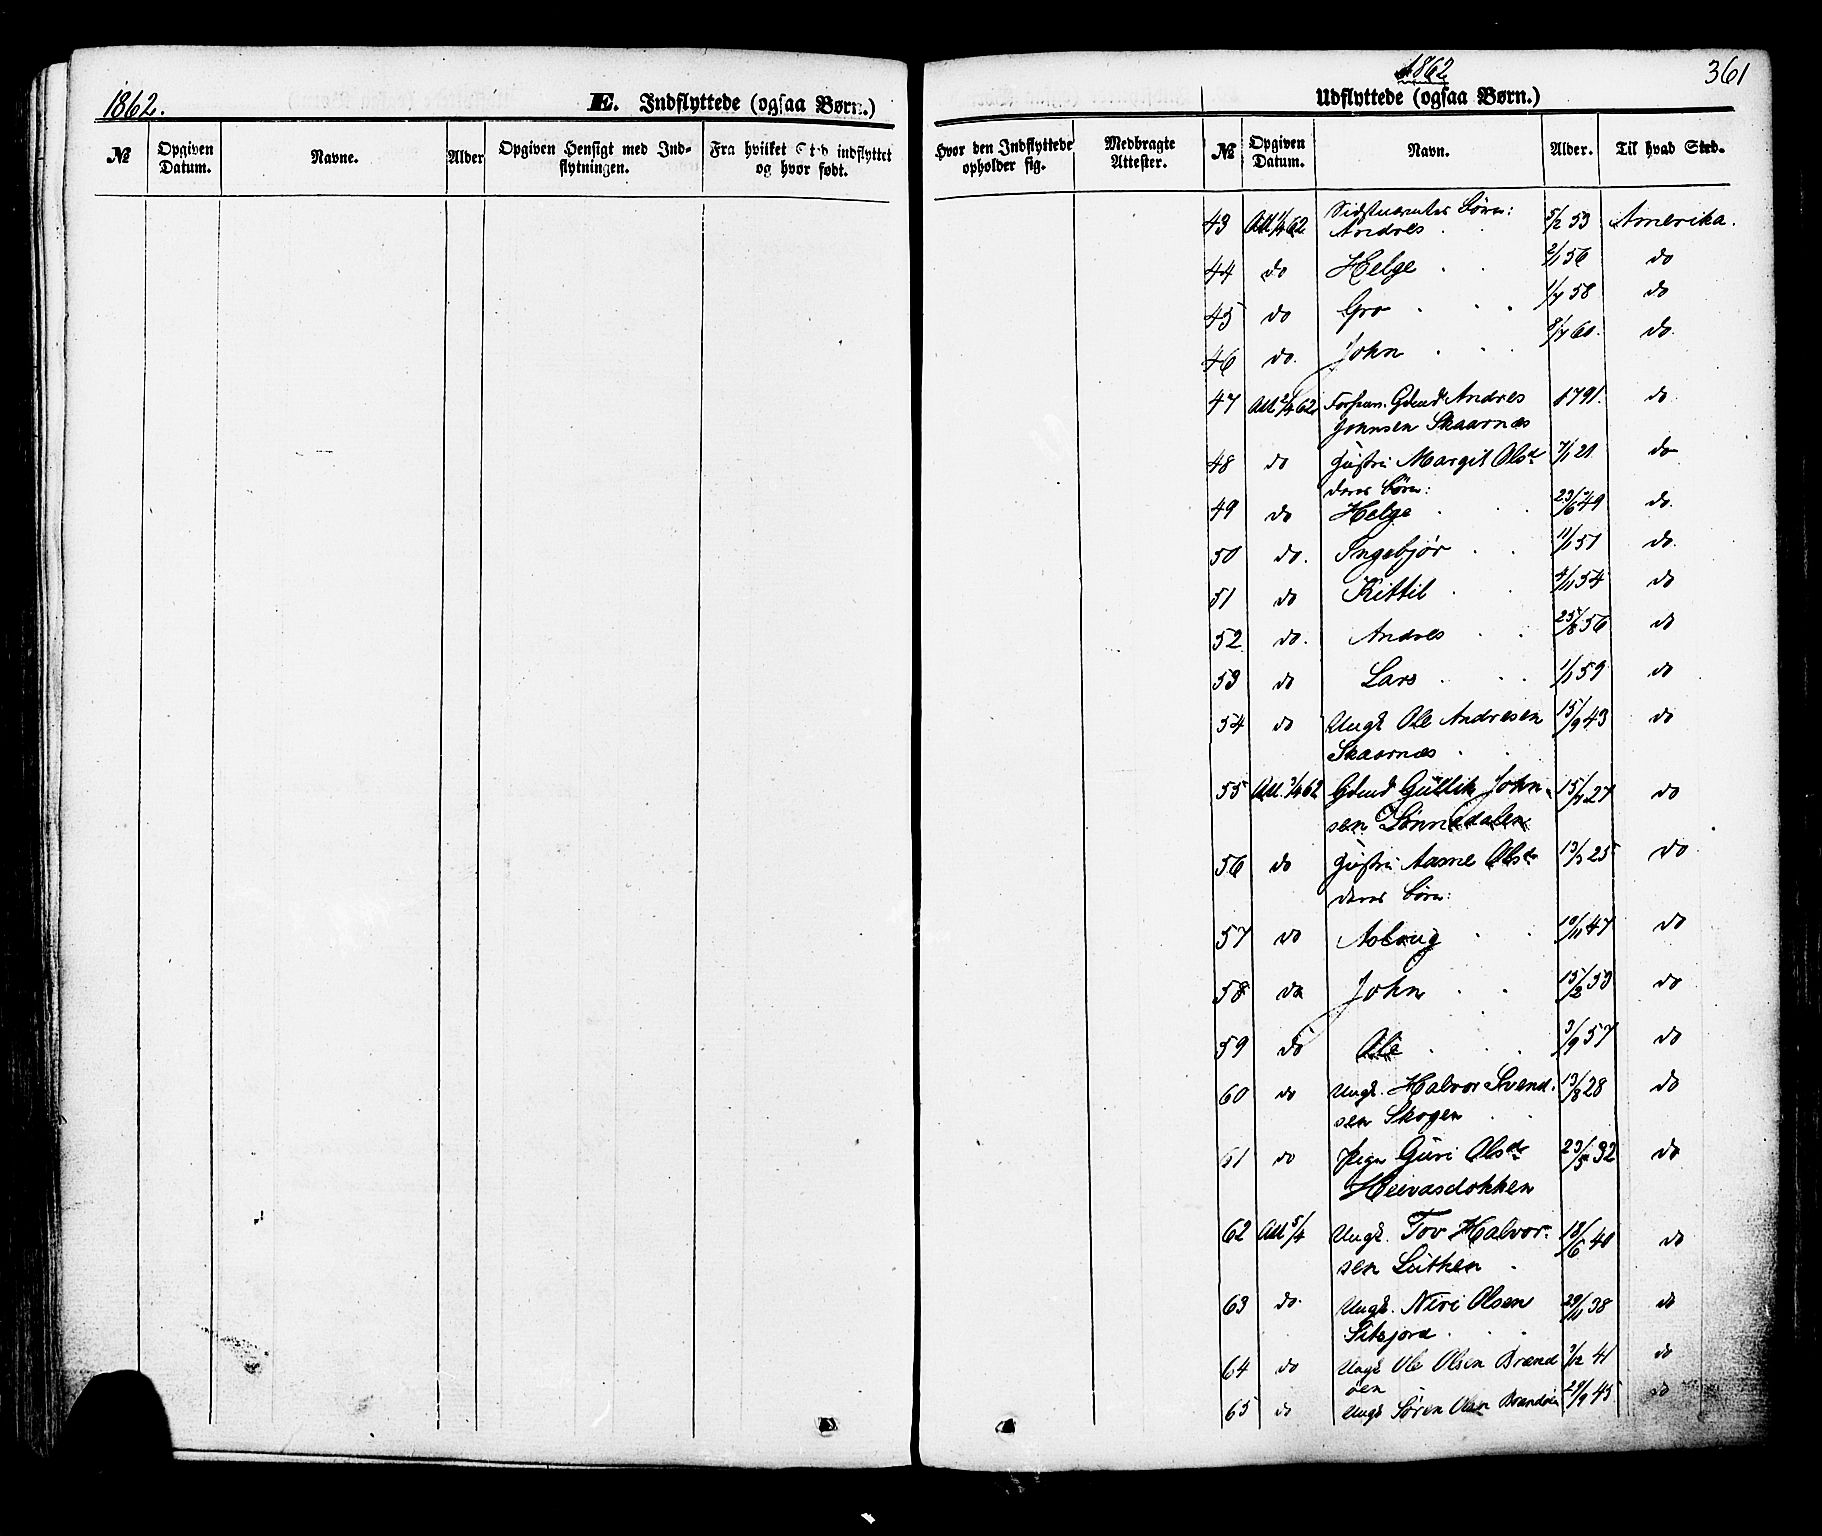 1862.
E. Indflyttede (ogsaa Børn.)
№ Opgiven Datum. Navne. Alder Opgiven Hensigt med Indflytningen. Fra hvilket Sted indflyttet og hvor født.
1862
361
Udflyttede (ogsaa Børn.)
Hvor den Indflyttede opholder sig. Medbragte Attester. № Opgiven Datum. Navn. Alder. Til hvad Sted.
Sidstnævntes Børn:
43 Att 1/4 62 Andres 5/2 53 Amerika.
44 do Helge 2/1 56 do
45 do Gro 1/7 58 do
46 do. John 8/7 60. do.
47 Att 2/4 62 Andres 1791. do
Johnsen Skaarnæs
48 do Hustru Margit Olsd. 7/1 21 do
deres Børn:
49 do Helge 23/6 49 do.
50 do. Ingebjør 11/1 51 do.
51 do Kittil 4/11 54 do
52 do. Andres 25/8 56 do
53 do Lars 1/1 59 do
54 do Ungk Ole Andresen 15/9 43 do
Skaarnæs
55 Att. 3/4 62 Gdmd Gullik John- 27 do
sen
56 do Hustru Aasne Olsd. 25 do
deres Børn:
57 do Aslaug 10/11 47 do
58 do John 15/2 53 do
59 do Ole 3/9 57 do
60 do Ungk. Halvor Svend- 13/8 28 do
sen Skogen
61 do Pige Guri Olsd. 23/5 32 do
62 Att 5/4 Ungk. Tov Halvor- 18/6 40 do
sen
63 do. Ungk. Olsen 38 do
64 do Ungk Ole Olsen Brænd 3/12 41 do
øen
65 do Ungk Søren Olsen Brændøen 29/9 45. do